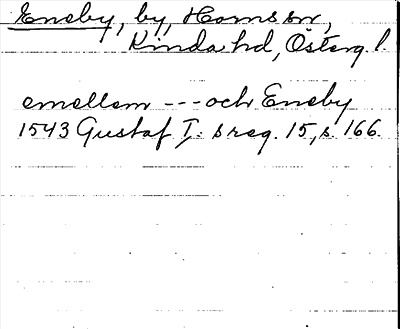 Eneby, by, Horns sn,
Kinda hd, Österg. l.
emellem --- och Eneby
1543 Gustaf I: s reg. 15, s. 166.